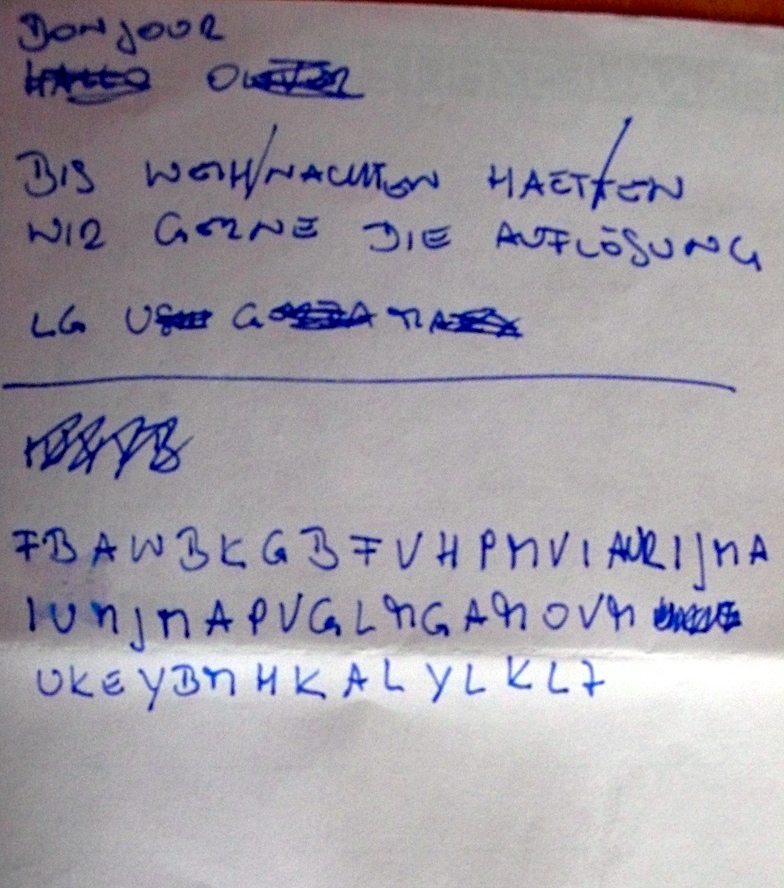 BONJOUR
BIS WEIHNACHTEN HAETTEN
WIR GERNE DIE AUFLÖSUNG
LG
FBAWBKGBFVHPMVIAURIJMA
IUMJMAPVGLMGAMOVM
UKEYBMHKALYLKLF